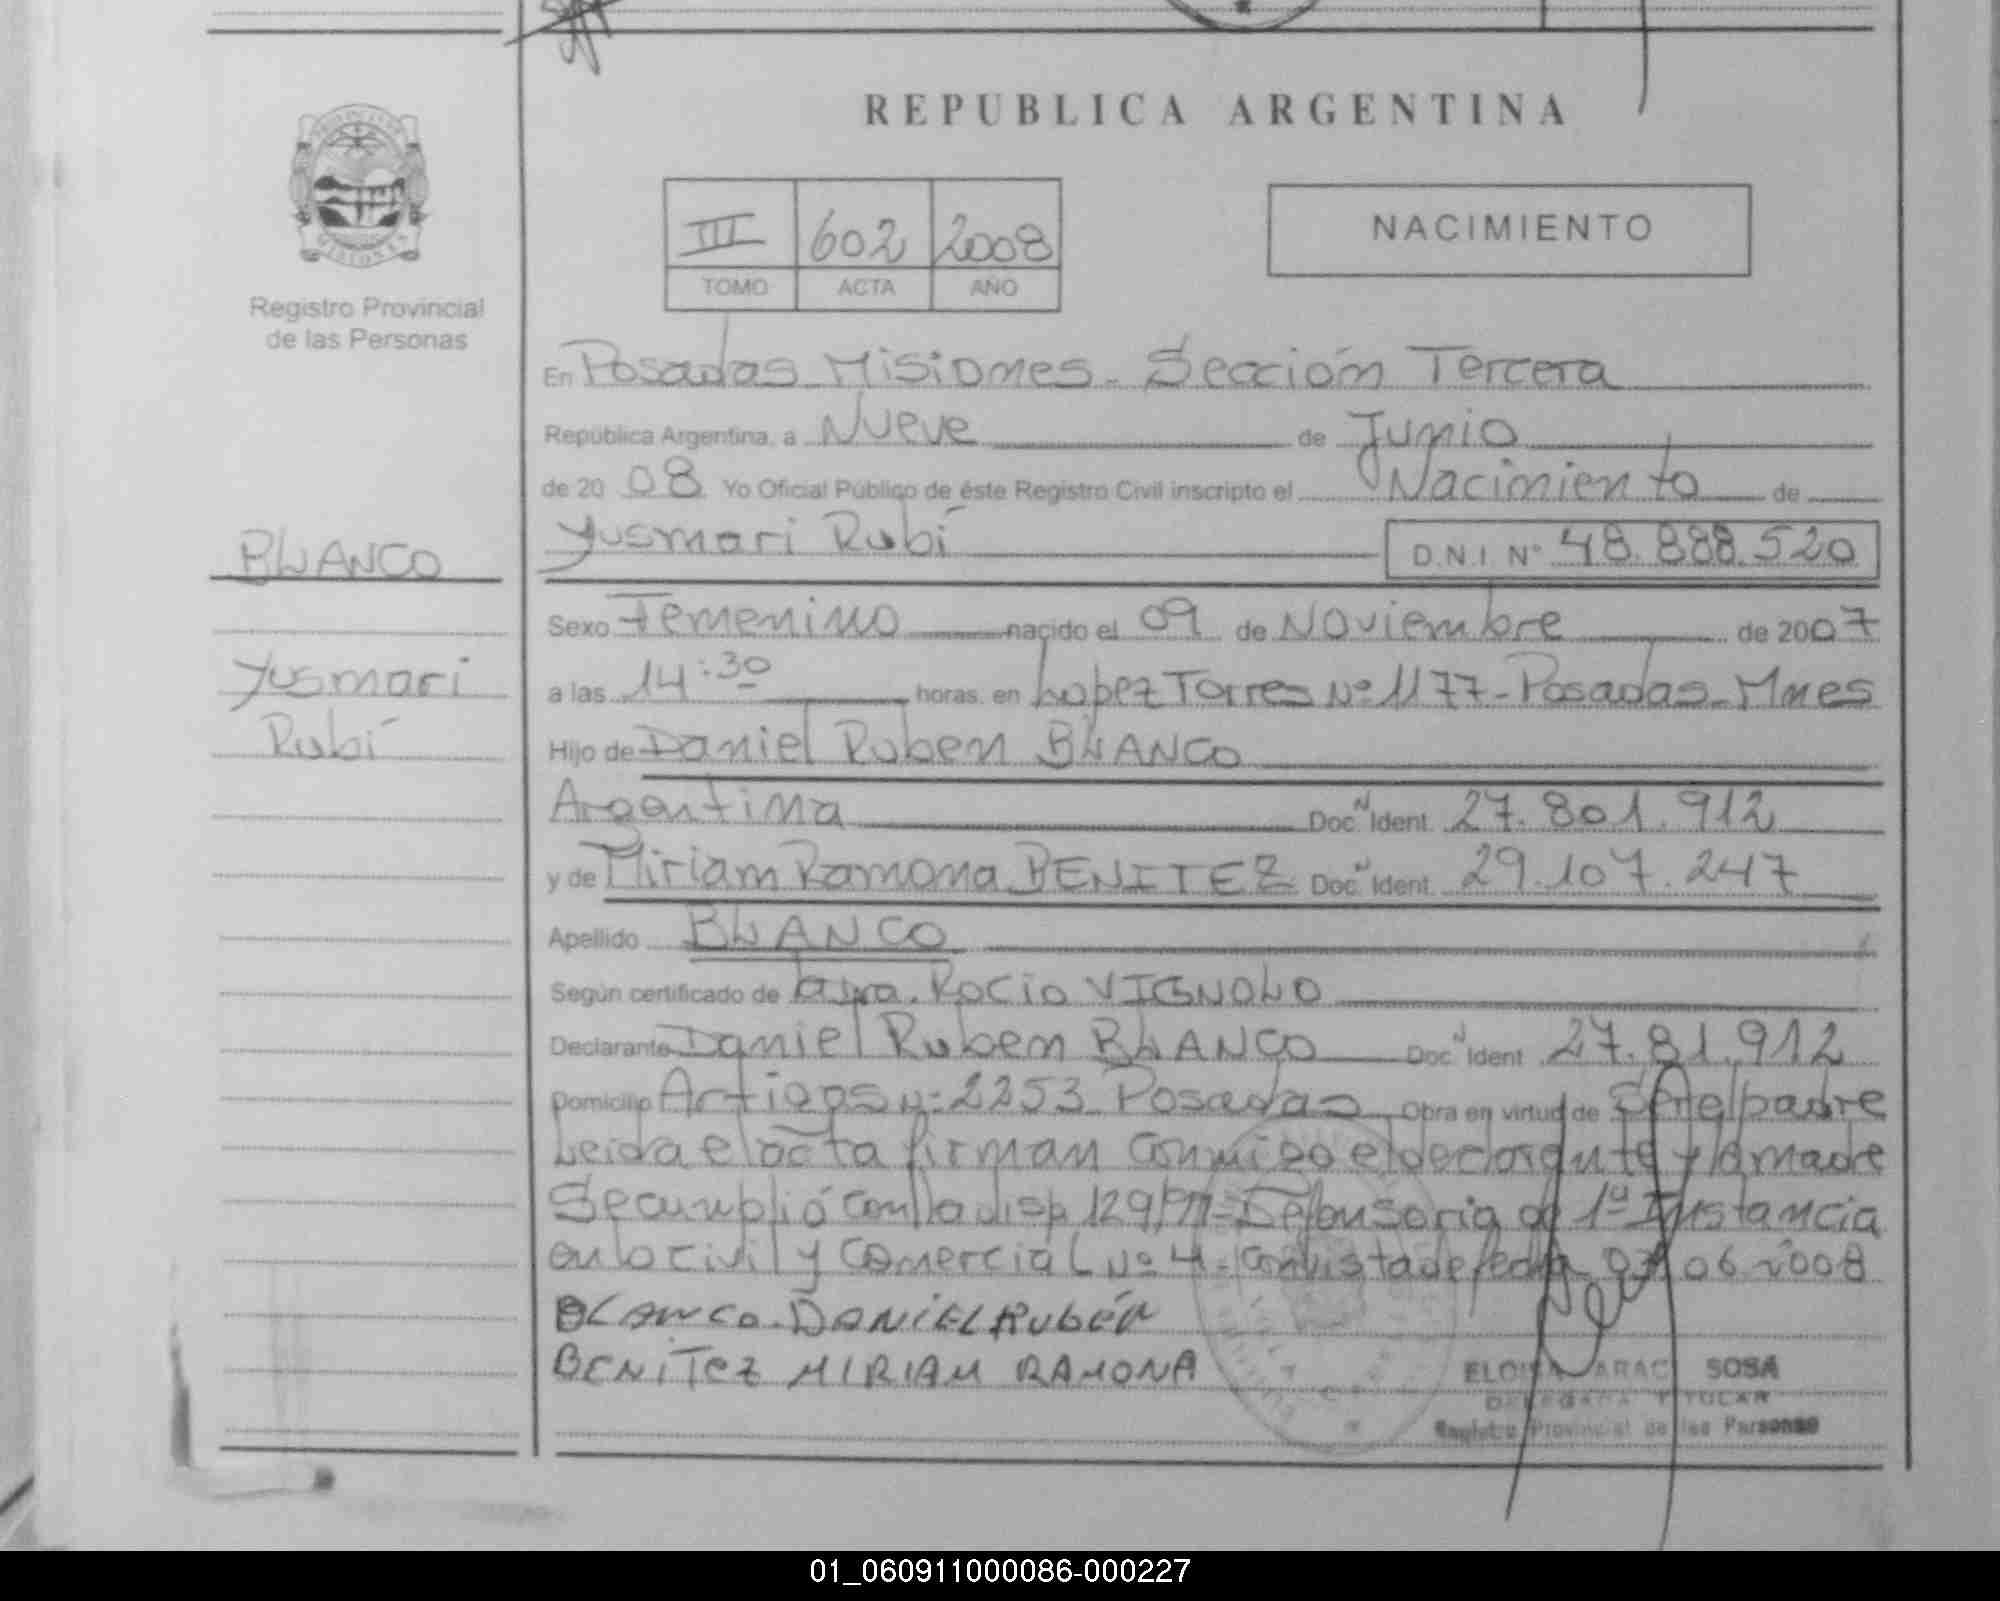 REPUBLICA ARGENTINA
Registro Provincial
de las Personas
III 602 2008
TOMO ACTA AÑO
NACIMIENTO
En Posadas Misiones - Sección Tercera
República Argentina, a Nueve de Junio
de 20 08 Yo Oficial Público de éste Registro Civil inscripto el Nacimiento de
BLANCO
Yusmari Rubí D.N.I. N° 48.888.520
Sexo Femenino nacido el 09 de Noviembre de 2007
Yusmari
Rubí
a las 14:30 horas, en Lopez Torres Nº 1177 - Posadas - Mnes
Hijo de Daniel Ruben BLANCO
Argentina Doc. Ident. 27.801.912
y de Miriam Ramona BENITEZ Doc. Ident. 29.107.247
Apellido BLANCO
Según certificado de Rocío VIGNOLO
Declarante Daniel Ruben BLANCO Doc. Ident. 27.81.912
Domicilio Artigas Nº 2253 Posadas Obra en virtud de Ser el padre
Leida el acta firman conmigo el declarante y la madre
Se cumplió con la disp 129/97 - Defensoria de 1ª Instancia
en lo civil y Comercial Nº 4 - con vista de fecha 06 2008
BLANCO - DANIEL RUBÉN
BENITEZ MIRIAM RAMONA
SOSA
DELEGADA TITULAR
Registro Provincial de las Personas
01_060911000086-000227